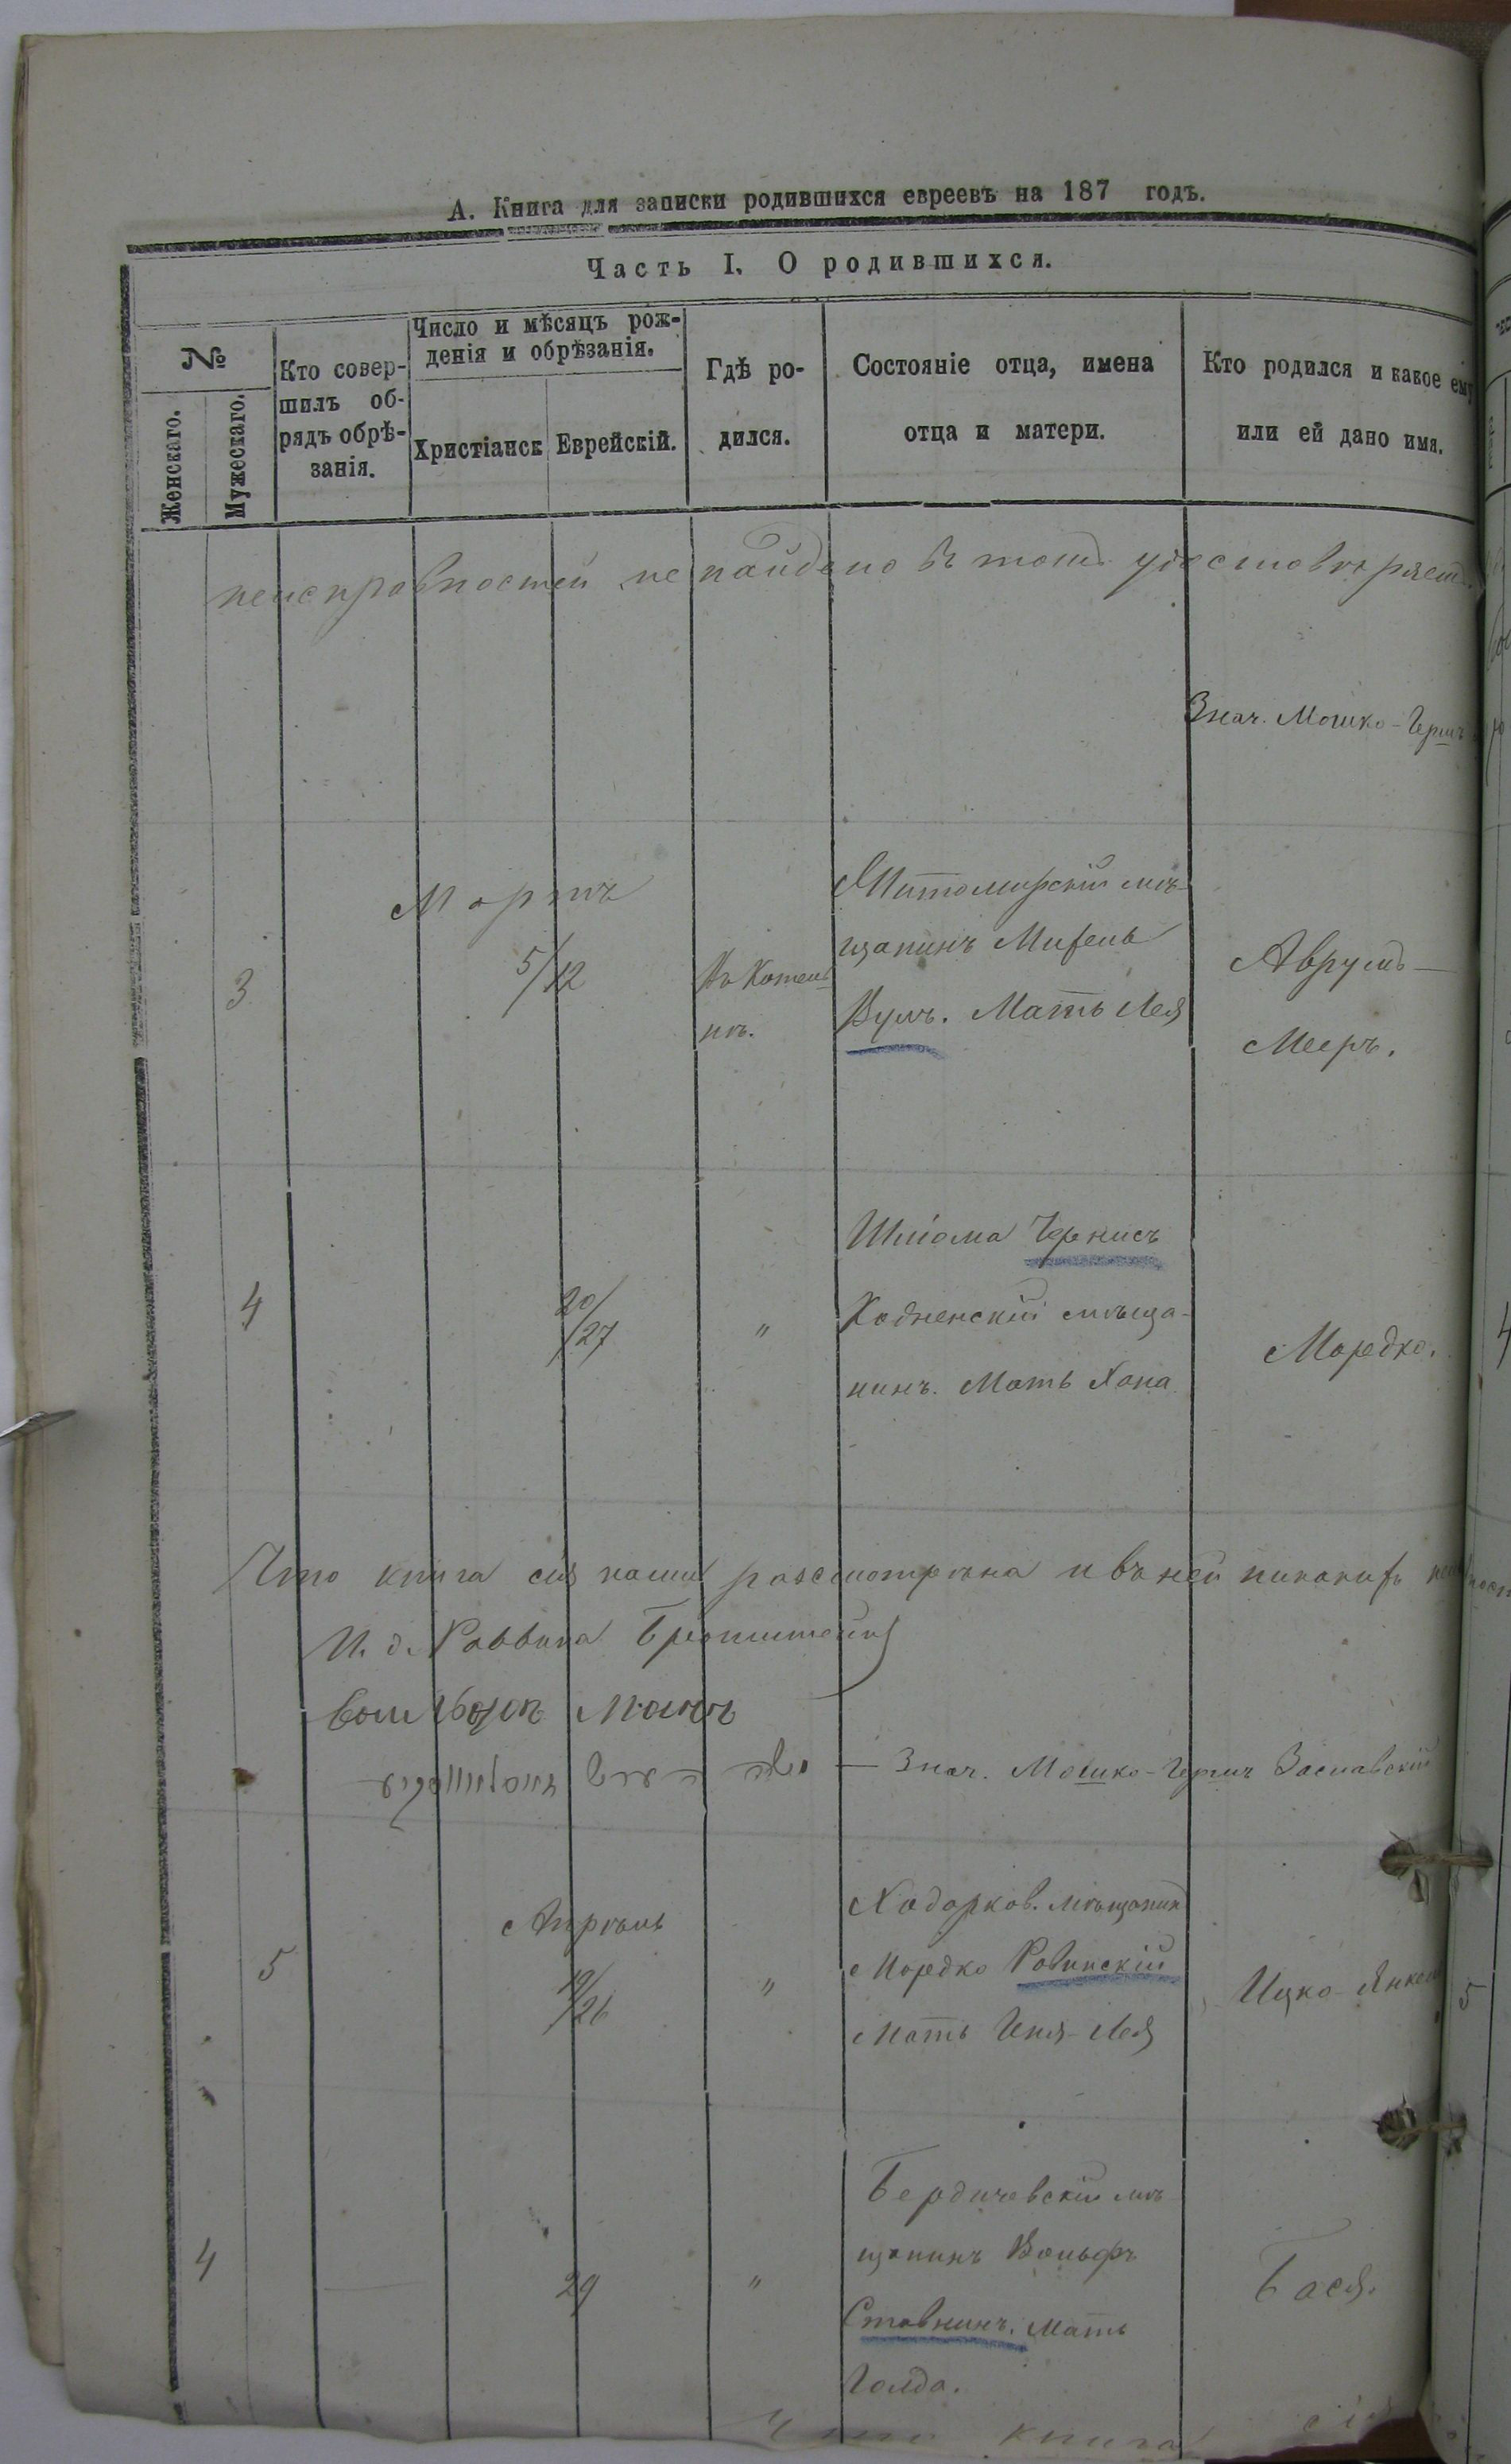 А. Книга для записки родившихся евреевъ на 187 годъ.
Часть I. О родившихся.
№
Женскаго.
Мужескаго.
Кто совер-
шилъ об-
рядъ обрѣ-
занія.
Число и мѣсяцъ рож-
денія и обрѣзанія.
Христіанск
Еврейскій.
Гдѣ ро-
дился.
Состояніе отца, имена
отца и матери.
Кто родился и какое ему
или ей дано имя.
неисправностей не найдено въ томъ удостовѣряемъ
Знач. Мошко-Герш
Мартъ
3
5/12
Въ Котель
нѣ.
Житомирскій мѣ-
щанинъ Михель
Вулъ. Мать Лея
Аврумъ-
Мееръ.
4
20/27
"
Шліома Чернисъ
Ходненскій мѣща-
нинъ. Мать Хана
Мордко.
Что книга сія нами разсмотрѣна и въ ней никакихъ
И. д. Раввина Бронштейнъ
— Знач. Мошко-Гершъ Заславскій
Апрѣль
5
19/26
"
Ходорков. мѣщанин
Мордко Ровинскій
Мать Геня-Лея
Ицко-Янкел
5
4
29
"
Бердичевскій мѣ
щанинъ Вольфъ
Ставнинъ. Мать
Голда.
Бася.
Что книга сія